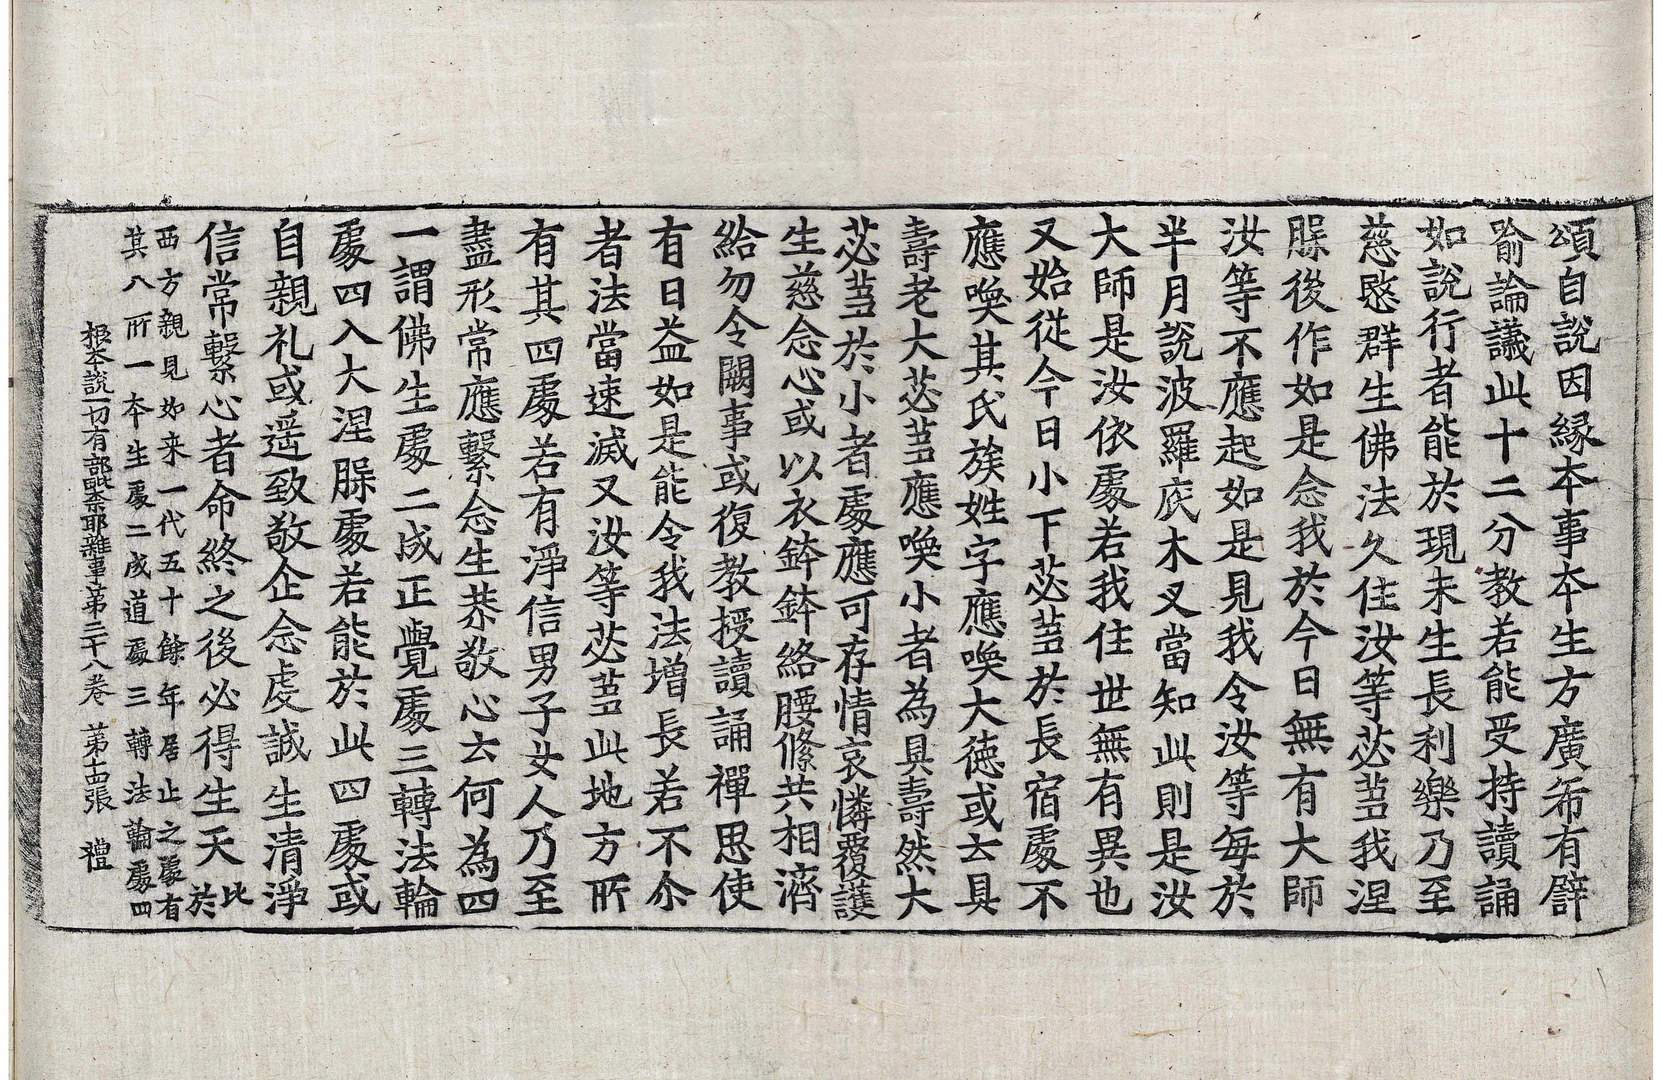 頌自說因縁本事本生方廣希有譬
喻論議此十二分教若能受持讀誦
如說行者能於現未生長利樂乃至
慈愍群生佛法久住汝等苾芻我涅
槃後作如是念我於今日無有大師
汝等不應起如是見我令汝等每於
半月說波羅底木叉當知此則是汝
大師是汝依處若我住世無有異也
又始從今日小下苾芻於長宿處不
應喚其氏族姓字應喚大德或云具
壽老大苾芻應喚小者為具壽然大
苾芻於小者處應可存情哀憐覆護
生慈念心或以衣鉢鉢絡腰絛共相濟
給勿令闕事或復教授讀誦禪思使
有日益如是能令我法增長若不尒
者法當速滅又汝等苾芻此地方所
有其四處若有淨信男子女人乃至
盡形常應繫念生恭敬心云何為四
一謂佛生處二成正覺處三轉法輪
處四入大涅槃處若能於此四處或
自親礼或遥致敬企念虔誠生清淨
信常繫心者命終之後必得生天比於
西方親見如来一代五十餘年居止之處有
其八所一本生處二成道處三轉法輪處四
根本說一切有部毗柰耶雜事第三十八卷 第十四張 禮